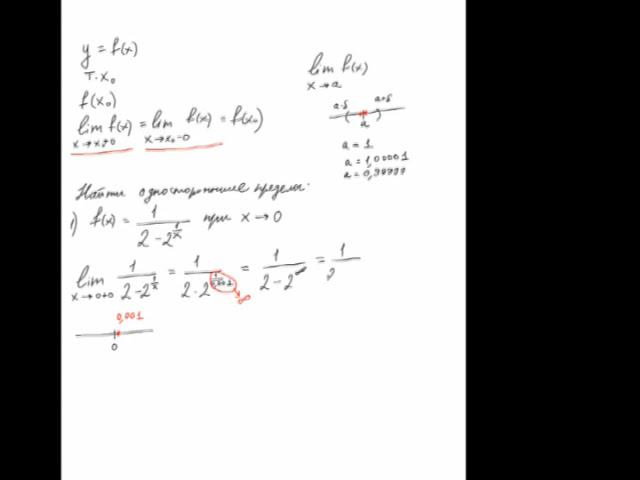 y = f(x)
т. x₀
f(x₀)
lim f(x) = lim f(x) = f(x₀)
x→x₀+0 x→x₀-0
lim f(x)
x→a
a-δ a+δ
a
a = 1
a = 1,00001
a = 0,99999
Найти односторонние пределы:
1) f(x) = 1/(2 - 2^(1/x)) при x → 0
lim 1/(2 - 2^(1/x)) = 1/(2 - 2^(1/0,001)) = 1/(2 - 2^∞) = 1/2
x→0+0
∞
0,001
0